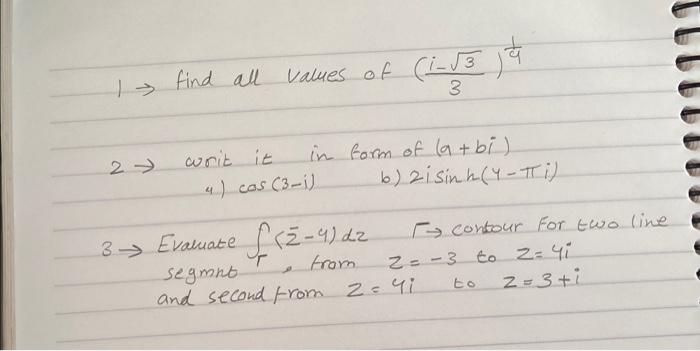 1 → find all values of (i-√3 / 3)^1/4
2 → writ it in form of (a+bi)
a) cos(3-i) b) 2i sinh(4-πi)
3 → Evaluate ∫Γ (z̄-4) dz Γ→ contour For two line
segmnt, from z = -3 to z = 4i
and second from z = 4i to z = 3+i